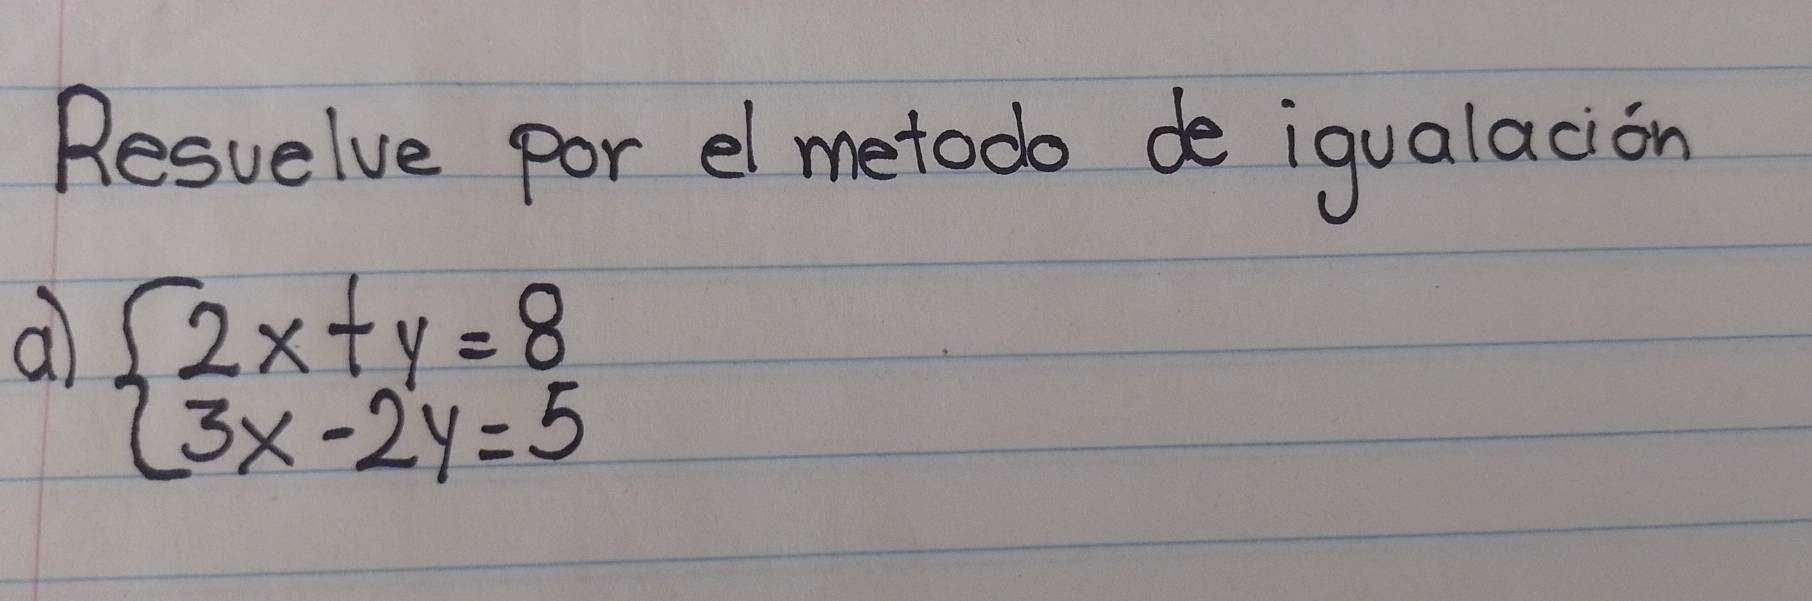 Resuelve por el metodo de igualación
a) { 2x + y = 8
3x - 2y = 5